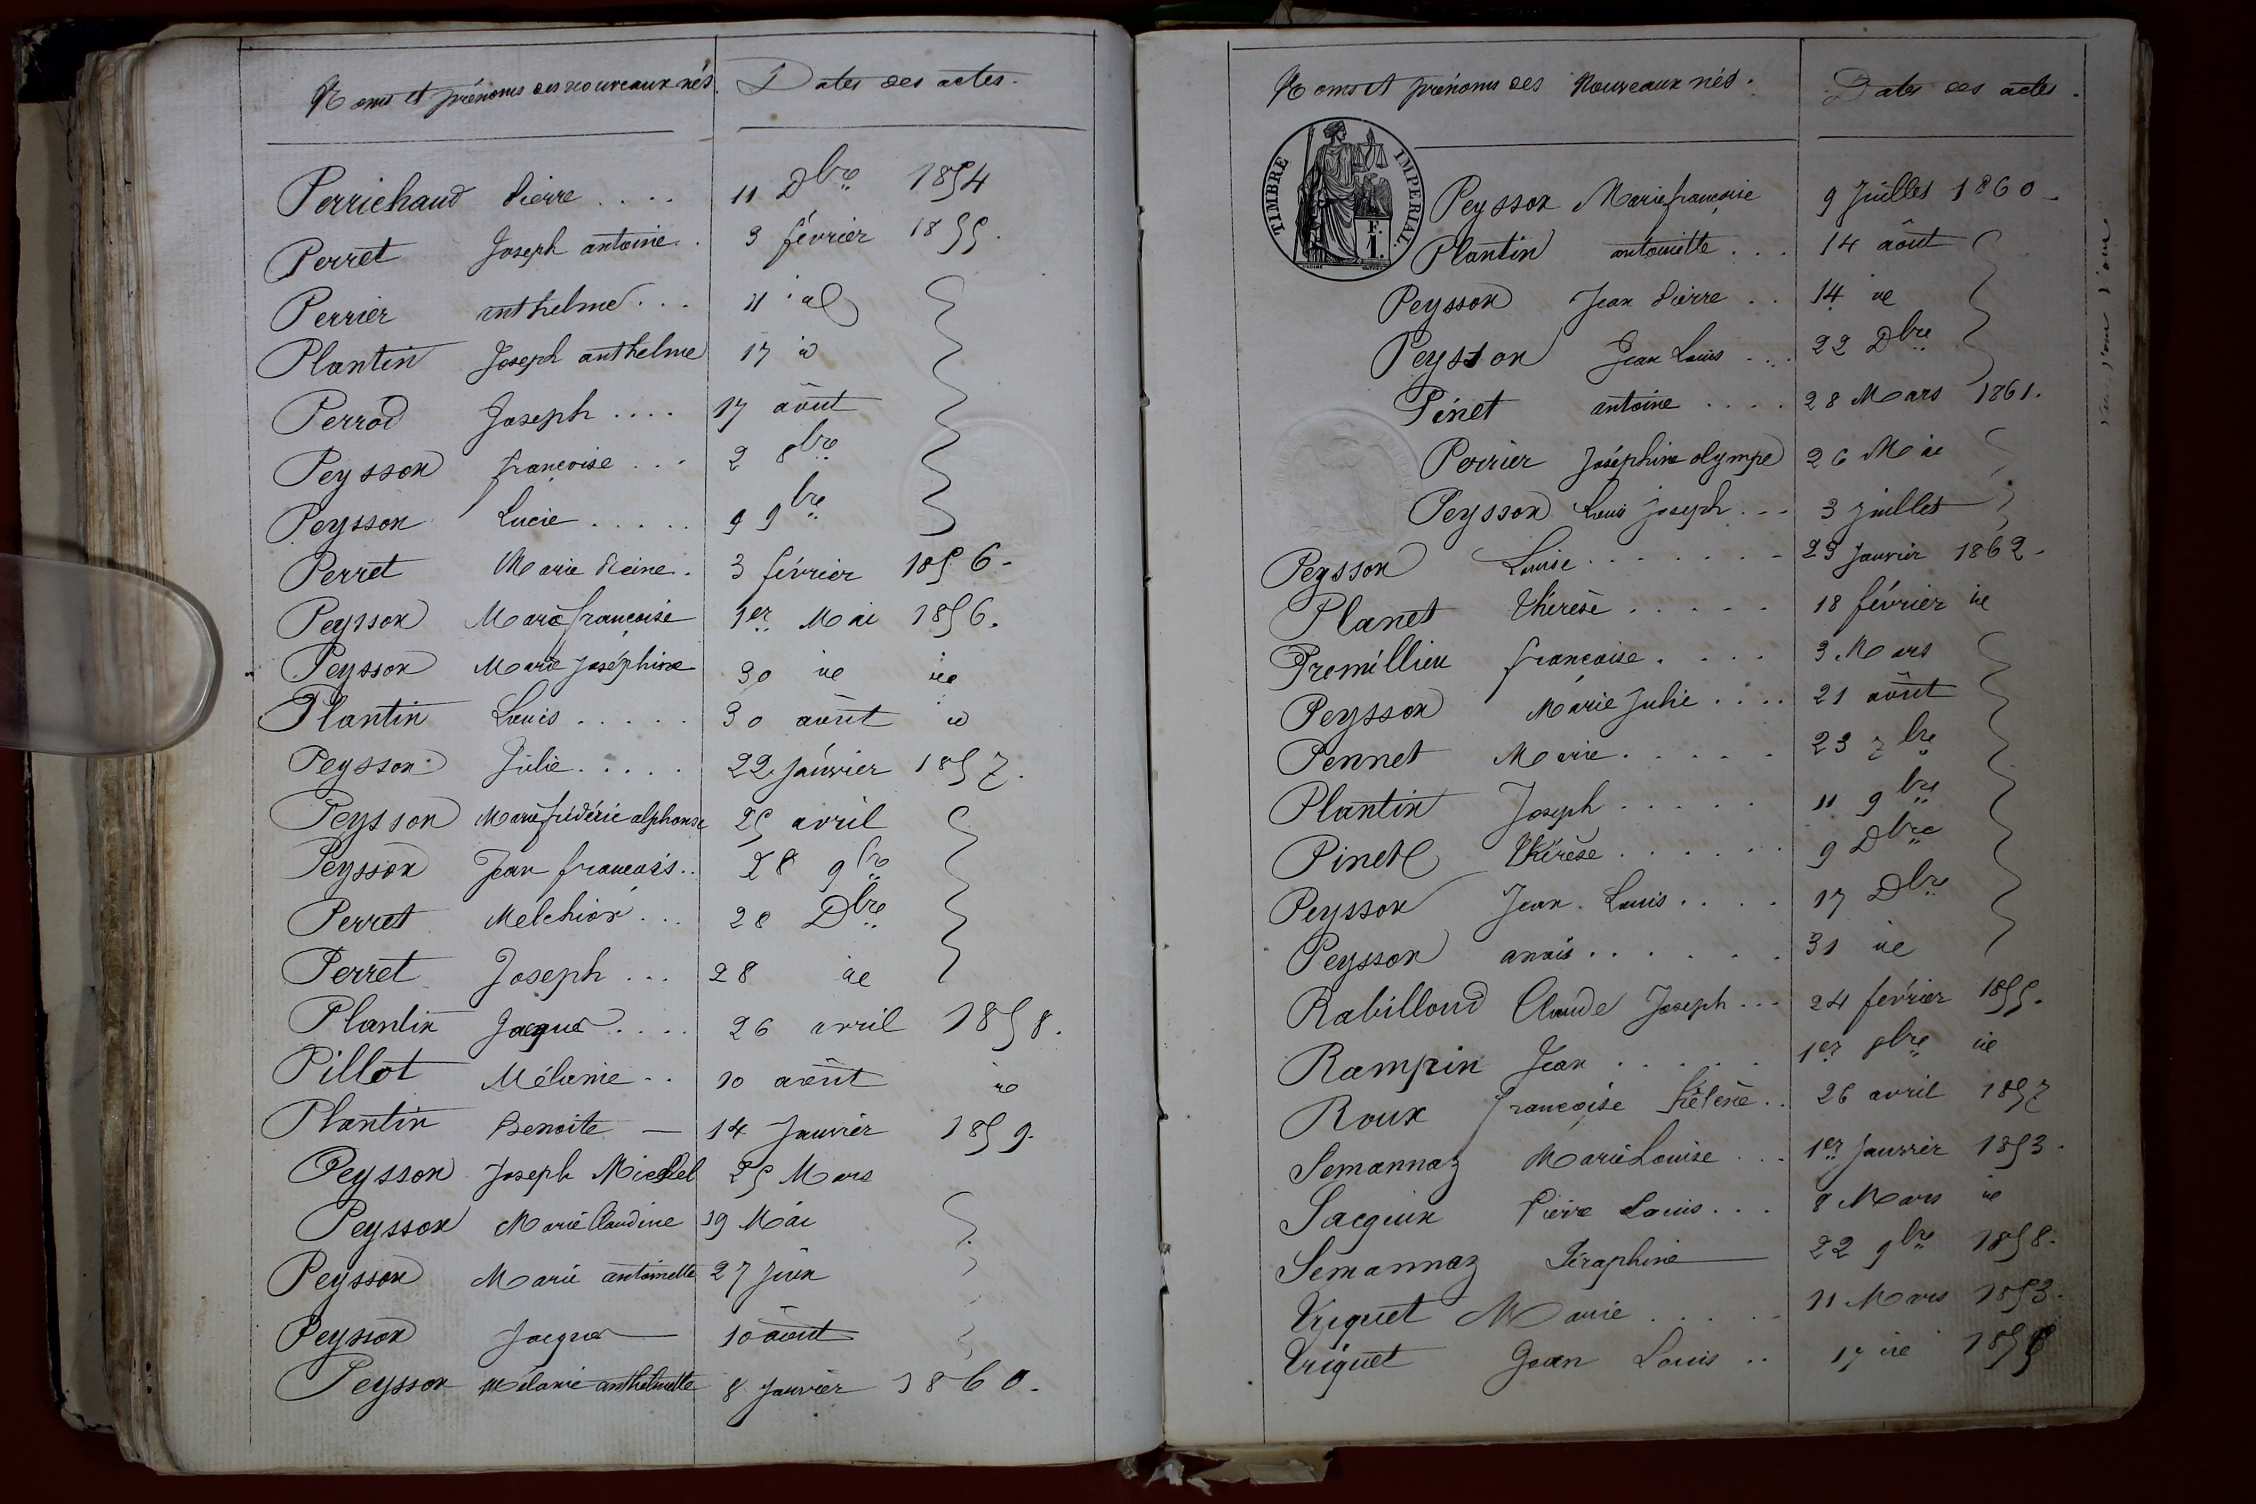 Noms et prénoms des nouveaux nés. Dates des actes.
Perrichaud Pierre .... 11 Dbre 1854
Perret Joseph antoine . 3 février 1855.
Perrier anthelme ... 11 id
Plantin Joseph anthelme 17 id
Perrod Joseph .... 17 août
Peysson françoise ... 2 8bre
Peysson Lucie ..... 9 9bre
Perret Marie Reine . 3 février 1856.
Peysson Marie françoise 1er Mai 1856.
Peysson Marie Joséphine 30 ie ie
Plantin Louis ..... 30 août id
Peysson Julie ..... 22 Janvier 1857.
Peysson Marie frédéric alphonse 25 avril
Peysson Jean françois .. 28 9bre
Perret Melchior ... 28 Dbre
Perret Joseph ... 28 ie
Plantin Jacques .... 26 avril 1858.
Pillot Mélanie .. 10 août ie
Plantin Benoite — 14 Janvier 1859.
Peysson Joseph Michel 25 Mars
Peysson Marie Claudine 19 Mai
Peysson Marie antoinette 27 Juin
Peysson Jacques — 10 août
Peysson Mélanie anthelmette 8 Janvier 1860.
Noms et prénoms des Nouveaux nés. Dates des actes.
TIMBRE IMPERIAL.
F.
1.
Peysson Marie françoise 9 Juillet 1860.
Plantin antoinette ... 14 août
Peysson Jean Pierre .. 14 ie
Peysson Jean Louis ... 22 Dbre
Pinet antoine .... 28 Mars 1861.
Perrier Joséphine olympe 26 Mai
Peysson Louis Joseph ... 3 Juillet
Peysson Louise ....... 29 Janvier 1862.
Planet Thérèse ..... 18 février ie
Promillieu françoise .... 3 Mars
Peysson Marie Julie .... 21 août
Pennet Marie ..... 23 7bre
Plantin Joseph ..... 11 9bre
Pinet Thérèse ...... 9 Dbre
Peysson Jean Louis .... 17 Dbre
Peysson anaïs ...... 31 ie
Rabilloud Claude Joseph ... 24 février 1855.
Rampin Jean ..... 1er 8bre ie
Roux françoise hélène .. 26 avril 1857
Semannaz Marie Louise ... 1er Janvier 1853.
Jacquin Pierre Louis ... 8 Mars ie
Semannaz Séraphine — 22 9bre 1858.
Triquet Marie ..... 11 Mars 1853.
Triquet Jean Louis .. 17 ie